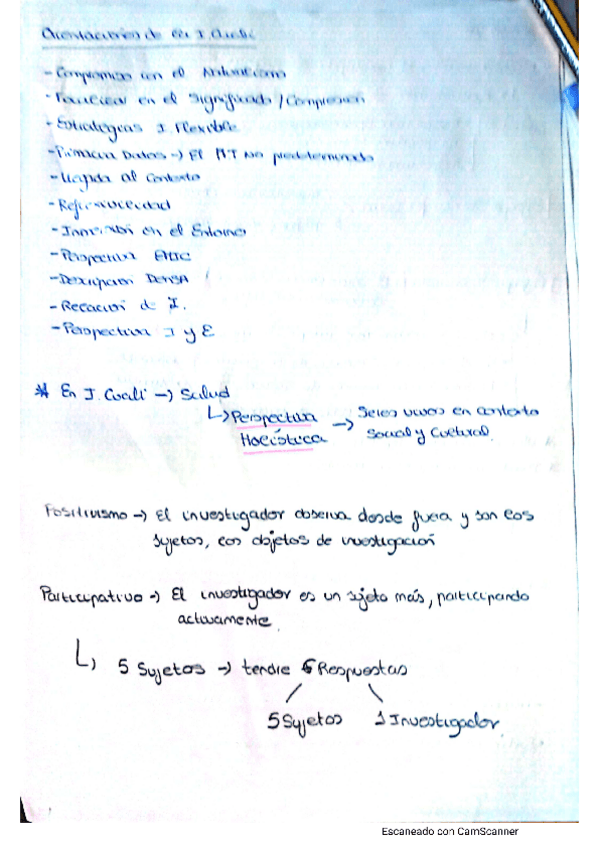 Orientaciones de la I. Cuali
- Compromiso con el Naturalismo
- Focalizar en el Significado / Compresion
- Estrategias I. Flexible
- Primacia Datos → El MT No predeterminado
- Ligada al Contexto
- Reflexividad
- Inmersión en el Entorno
- Perspectiva EMIC
- Descripcion DENSA
- Relación de I.
- Perspectiva I y E
* En I. Cuali → Salud
↳ Perspectiva → Seres vivos en contexto
Holística Social y Cultural
Positivismo → El investigador observa desde fuera y son los
sujetos, los objetos de investigación
Participativo → El investigador es un sujeto más, participando
activamente.
↳ 5 Sujetos → tendre 6 Respuestas
5 Sujetos 1 Investigador
Escaneado con CamScanner